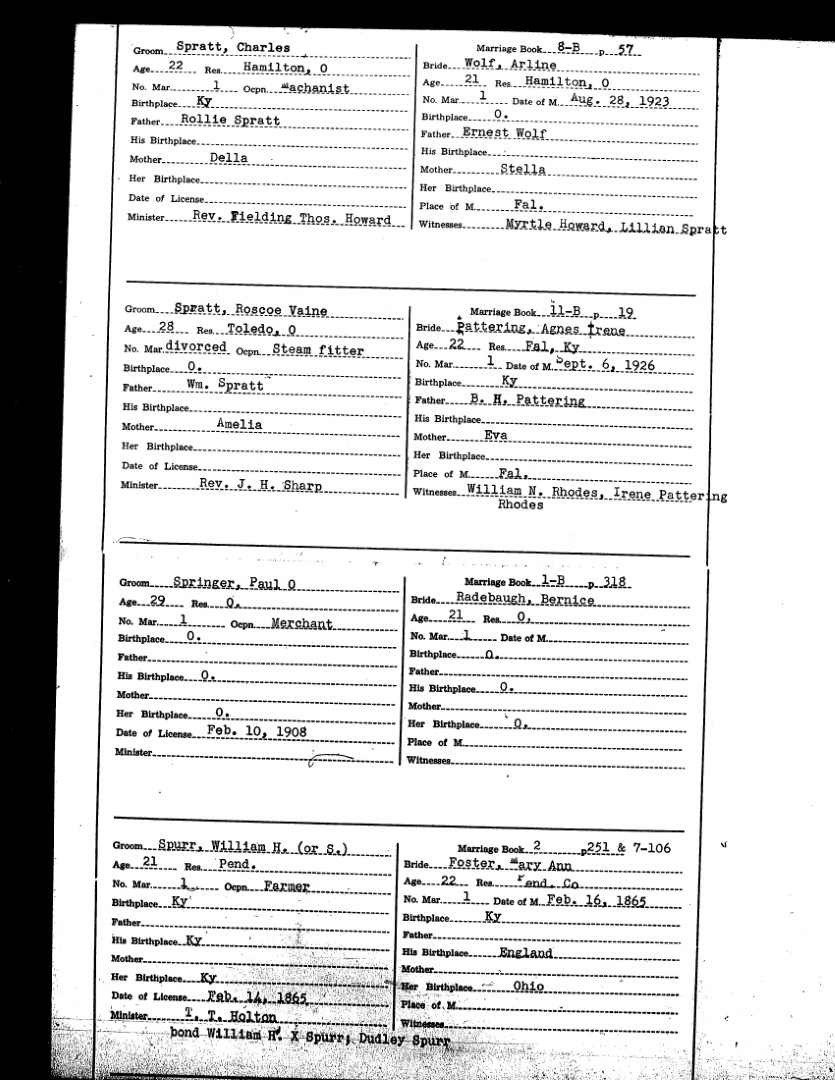 Groom Spratt, Charles
Age 22 Res. Hamilton, O
No. Mar. 1 Ocpn. Machanist
Birthplace Ky
Father Rollie Spratt
His Birthplace
Mother Della
Her Birthplace
Date of License
Minister Rev. Fielding Thos. Howard
Marriage Book 8-B p 57
Bride Wolf, Arline
Age 21 Res. Hamilton, O
No. Mar 1 Date of M. Aug. 28, 1923
Birthplace O.
Father Ernest Wolf
His Birthplace
Mother Stella
Her Birthplace
Place of M. Fal.
Witnesses Myrtle Howard, Lillian Spratt
Groom Spratt, Roscoe Vaine
Age 28 Res. Toledo, O
No. Mar. divorced Ocpn. Steam fitter
Birthplace O.
Father Wm. Spratt
His Birthplace
Mother Amelia
Her Birthplace
Date of License
Minister Rev. J. H. Sharp
Marriage Book 11-B p 19
Bride Pattering, Agnes Irene
Age 22 Res. Fal, Ky
No. Mar. 1 Date of M. Sept. 6, 1926
Birthplace Ky
Father B. H. Pattering
His Birthplace
Mother Eva
Her Birthplace
Place of M. Fal.
Witnesses William N. Rhodes, Irene Pattering
Rhodes
Groom Springer, Paul O
Age 29 Res. O.
No. Mar. 1 Ocpn. Merchant
Birthplace O.
Father
His Birthplace O.
Mother
Her Birthplace O.
Date of License Feb. 10, 1908
Minister
Marriage Book 1-B p 318
Bride Radebaugh, Bernice
Age 21 Res. O.
No. Mar. 1 Date of M.
Birthplace O.
Father
His Birthplace O.
Mother
Her Birthplace O.
Place of M.
Witnesses
Groom Spurr, William H. (or S.)
Age 21 Res. Pend.
No. Mar. 1 Ocpn. Farmer
Birthplace Ky
Father
His Birthplace Ky
Mother
Her Birthplace Ky
Date of License Feb. 14, 1865
Minister T. T. Holton
bond William H. X Spurr; Dudley Spurr
Marriage Book 2 p 251 & 7-106
Bride Foster, Mary Ann
Age 22 Res. Pend. Co
No. Mar. 1 Date of M. Feb. 16, 1865
Birthplace Ky
Father
His Birthplace England
Mother
Her Birthplace Ohio
Place of M.
Witnesses